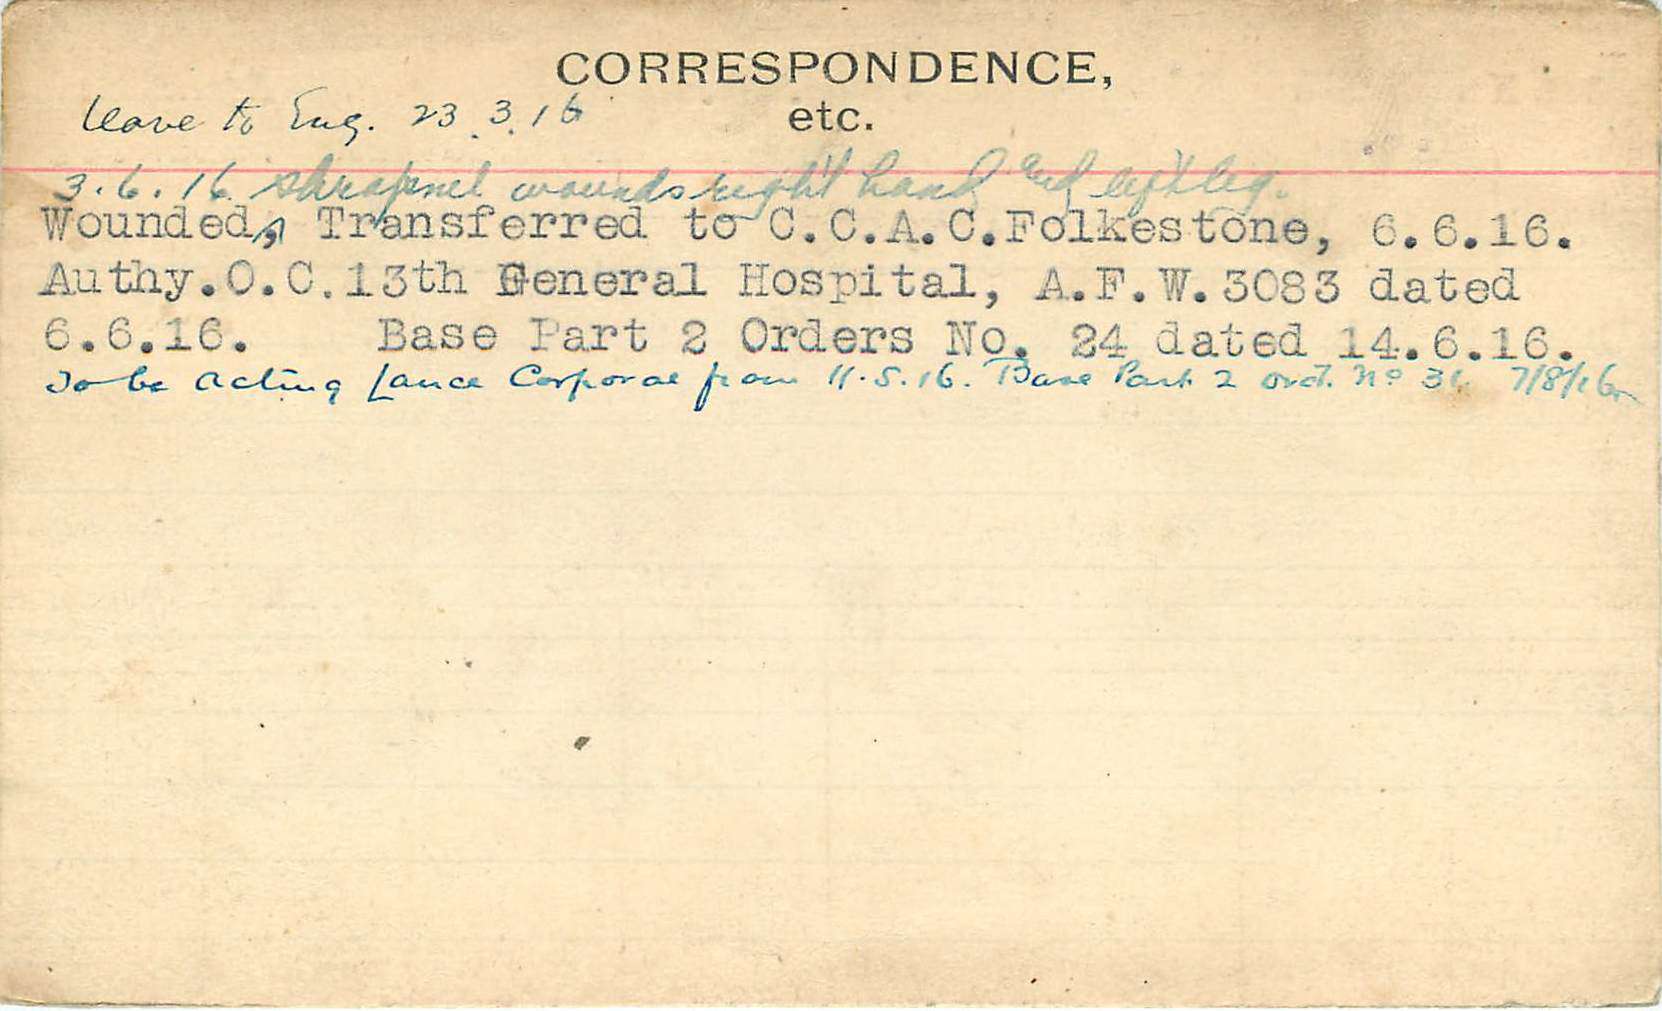 CORRESPONDENCE,
etc.
leave to Eng. 23.3.16
3.6.16 shrapnel wounds right hand and left leg.
Wounded, Transferred to C.C.A.C.Folkestone, 6.6.16.
Authy.O.C.13th General Hospital, A.F.W.3083 dated
6.6.16. Base Part 2 Orders No. 24 dated 14.6.16.
To be Acting Lance Corporal from 11.5.16. Base Part 2 ord. No 31 7/8/16